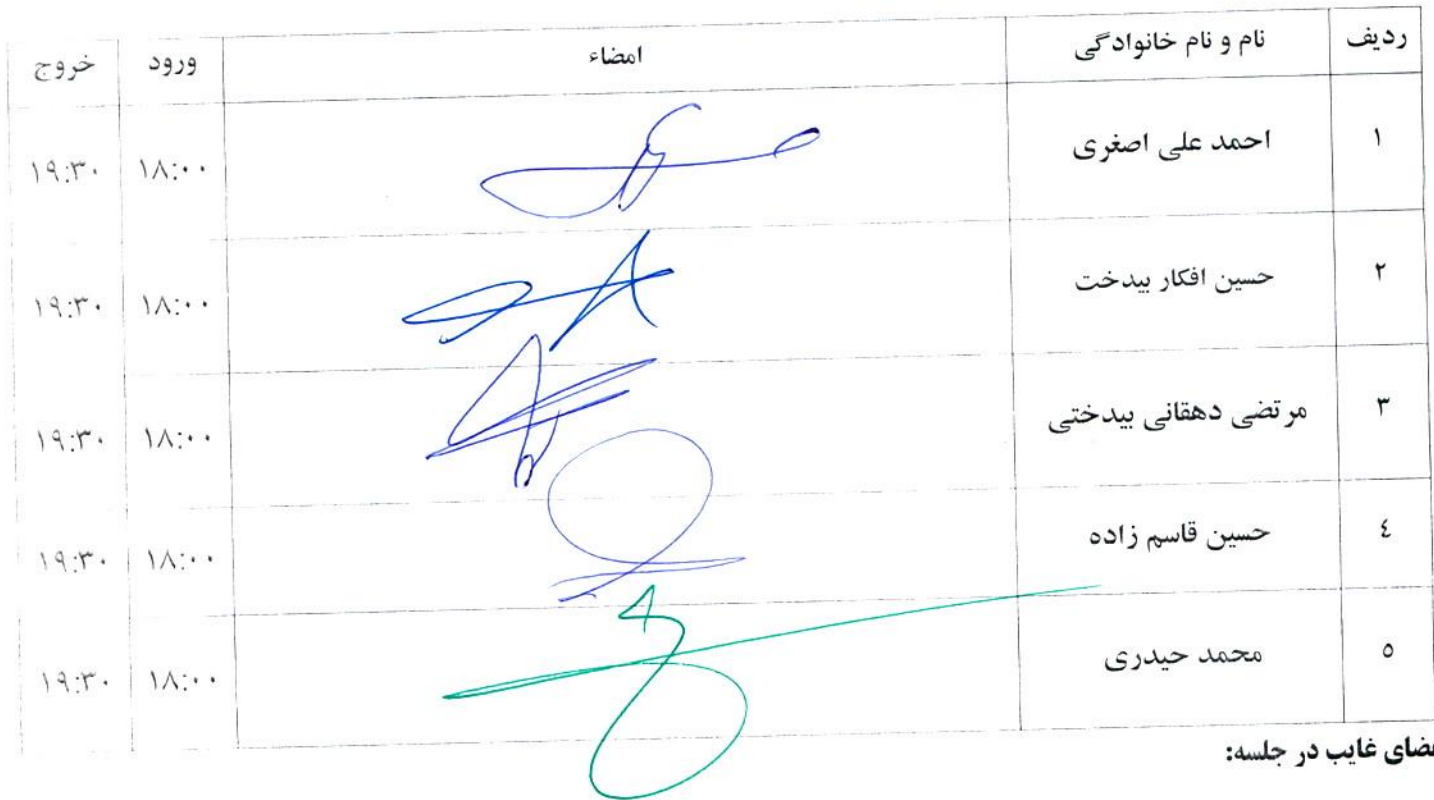 ردیف نام و نام خانوادگی امضاء ورود خروج
۱ احمد علی اصغری ۱۸:۰۰ ۱۹:۳۰
۲ حسین افکار بیدخت ۱۸:۰۰ ۱۹:۳۰
۳ مرتضی دهقانی بیدختی ۱۸:۰۰ ۱۹:۳۰
٤ حسین قاسم زاده ۱۸:۰۰ ۱۹:۳۰
٥ محمد حیدری ۱۸:۰۰ ۱۹:۳۰
ضای غایب در جلسه: